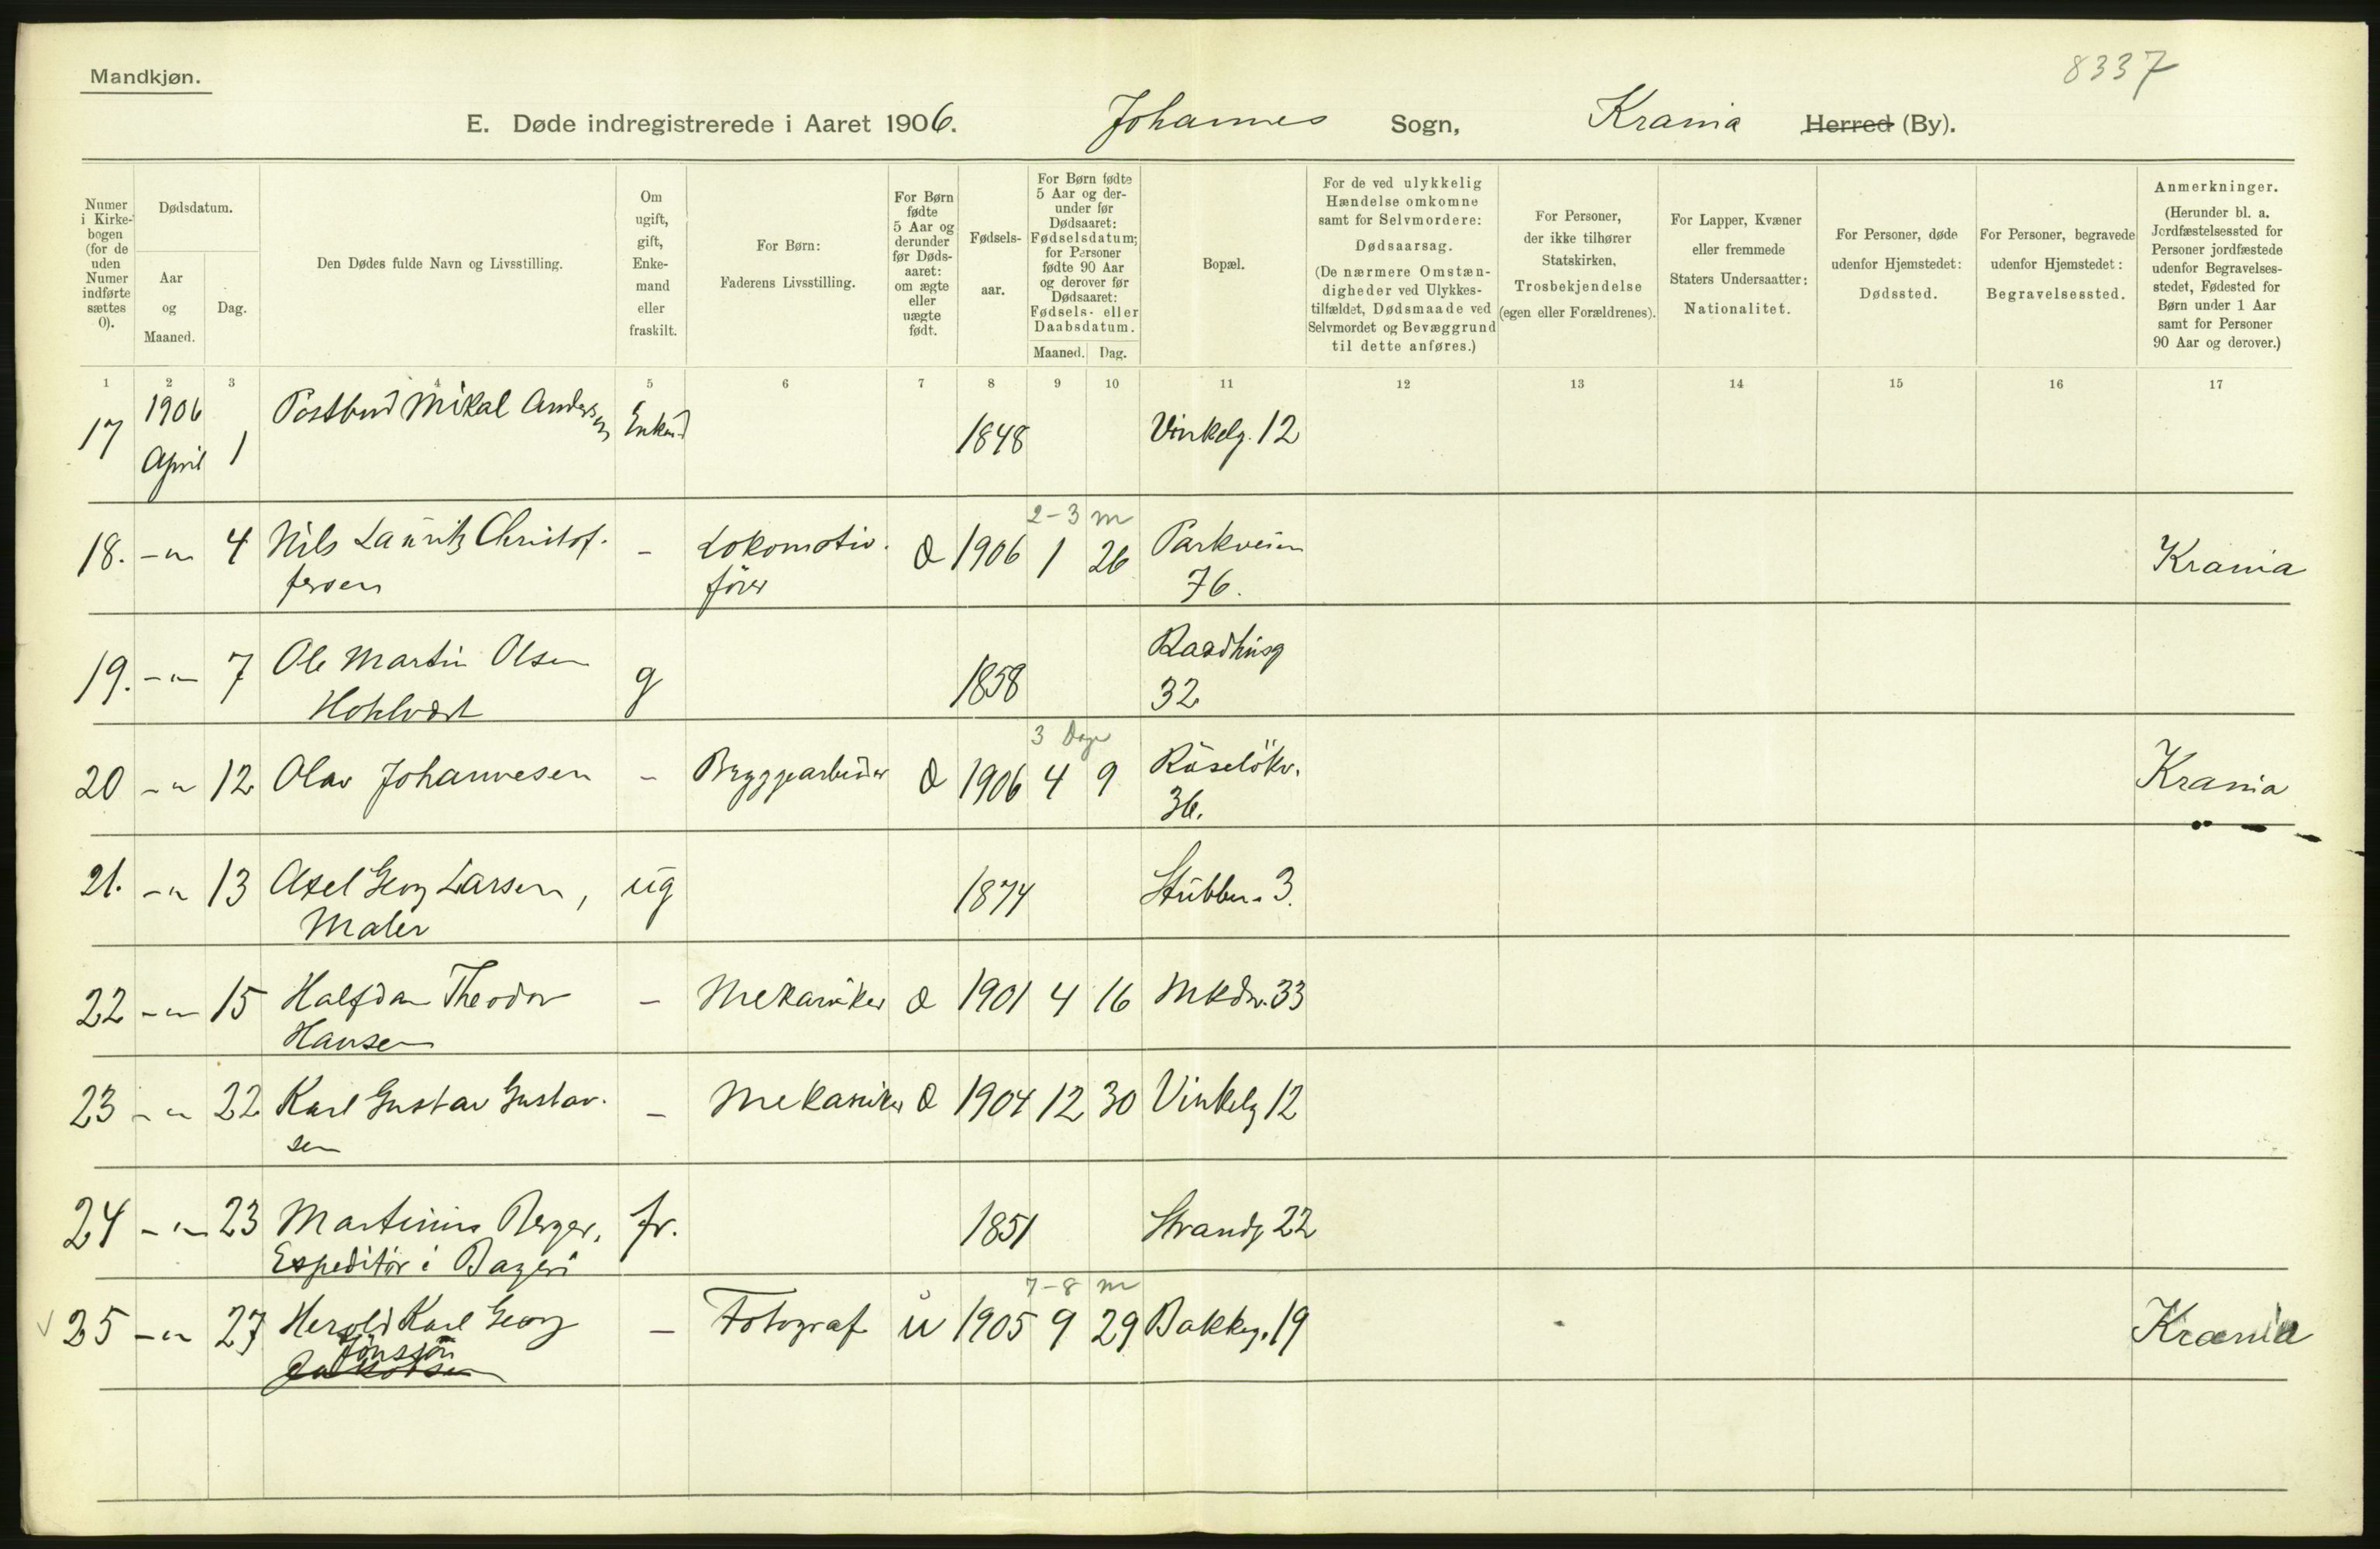 Mandkjøn.
8337
E. Døde indregistrerede i Aaret 1906. Johannes Sogn, Krania Herred (By).
Numer i Kirke-bogen (for de uden Numer indførte sættes 0).
Dødsdatum.
Aar og Maaned.
Dag.
Den Dødes fulde Navn og Livsstilling.
Om ugift, gift, Enke-mand eller fraskilt.
For Børn: Faderens Livsstilling.
For Børn fødte 5 Aar og derunder før Døds-aaret: om ægte eller uægte født.
Fødsels-aar.
For Børn fødte 5 Aar og der-under før Dødsaaret: Fødselsdatum; for Personer fødte 90 Aar og derover før Dødsaaret: Fødsels- eller Daabsdatum.
Maaned. Dag.
Bopæl.
For de ved ulykkelig Hændelse omkomne samt for Selvmordere: Dødsaarsag. (De nærmere Omstæn-digheder ved Ulykkes-tilfældet, Dødsmaade ved Selvmordet og Bevæggrund til dette anføres.)
For Personer, der ikke tilhører Statskirken, Trosbekjendelse (egen eller Forældrenes).
For Lapper, Kvæner eller fremmede Staters Undersaatter: Nationalitet.
For Personer, døde udenfor Hjemstedet: Dødssted.
For Personer, begravede udenfor Hjemstedet: Begravelsessted.
Anmerkninger. (Herunder bl. a. Jordfæstelsessted for Personer jordfæstede udenfor Begravelses-stedet, Fødested for Børn under 1 Aar samt for Personer 90 Aar og derover.)
1 2 3 4 5 6 7 8 9 10 11 12 13 14 15 16 17
1906
17 April 1 Postbud Mikal Andersen Enkmd 1848 Vinkelg. 12
2-3 m
18. -"- 4 Nils Lauritz Christof- - Lokomotiv- 1906 1 26 Parkveien Krania
fersen fører 76.
19. -"- 7 Ole Martin Olsen g 1858 Raadhusg
Hotelvært 32
3 Dage
20 -"- 12 Olav Johannesen - Bryggearbeider 1906 4 9 Ruseløkv. Krania
36.
21. -"- 13 Axel Georg Larsen, ug 1874 Stubber. 3.
Maler
22 -"- 15 Halfdan Theodor - Mekaniker 1901 4 16 Mkdv. 33
Hansen
23 -"- 22 Karl Gustav Gustav- - Mekaniker 1904 12 30 Vinkelg 12
sen
24 -"- 23 Martinius Berger, fr. 1851 Strandg 22
Expeditør i Bageri
7-8 m
25 -"- 27 Herold Karl Georg - Fotograf u 1905 9 29 Bakkeg. 19 Krania
Jonsson
Jakobsen